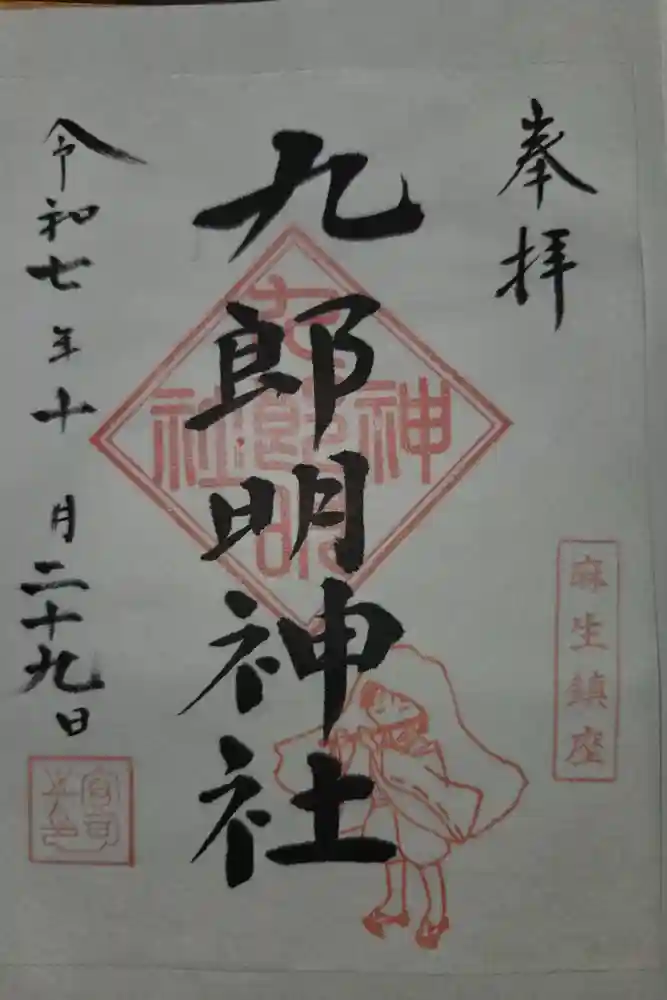 奉拝
麻生鎮座
九郎明神社
九郎明
神
社
令和七年十月二十九日
宮司